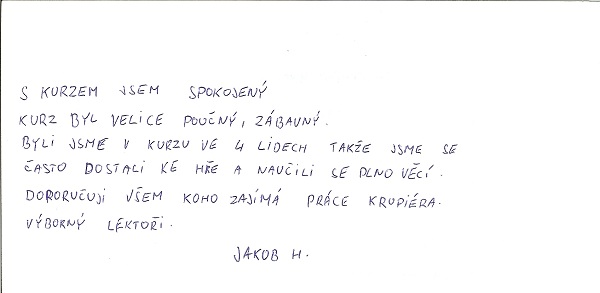 S KURZEM JSEM SPOKOJENÝ
KURZ BYL VELICE POUČNÝ, ZÁBAVNÝ.
BYLI JSME V KURZU VE 4 LIDECH TAKŽE JSME SE
ČASTO DOSTALI KE HŘE A NAUČILI SE PLNO VĚCÍ.
DOPORUČUJI VŠEM KOHO ZAJÍMÁ PRÁCE KRUPIÉRA.
VÝBORNÝ LEKTOŘI.
JAKOB H.